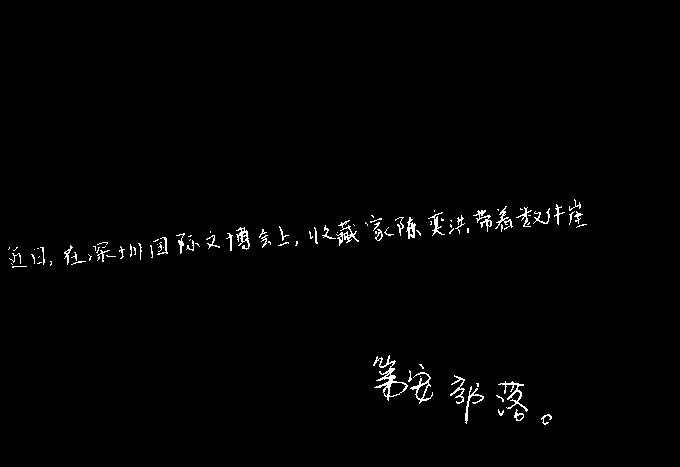 近日,在深圳国际文博会上,收藏家陈奕洪带着数件崖
第安部落。